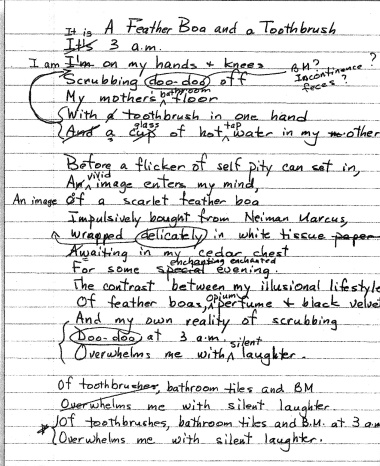 A Feather Boa and a Toothbrush
It is It's 3 a.m.
I am I'm on my hands & knees
BM? Incontinence? feces?
Scrubbing doo-doo off
My mother's bathroom floor
With a toothbrush in one hand
And a cup glass of hot tap water in my other
Before a flicker of self pity can set in,
An vivid image enters my mind,
An image Of a scarlet feather boa
Impulsively bought from Neiman Marcus,
Wrapped delicately in white tissue paper
Awaiting in my cedar chest
For some special enchanting enchanted evening.
The contrast between my illusional lifestyle
Of feather boas, opium perfume & black velvet
And my own reality of scrubbing
Doo-doo at 3 a.m.
Overwhelms me with silent laughter.
Of toothbrushes, bathroom tiles and BM
Overwhelms me with silent laughter.
* Of toothbrushes, bathroom tiles and B.M. at 3 a.m
Overwhelms me with silent laughter.